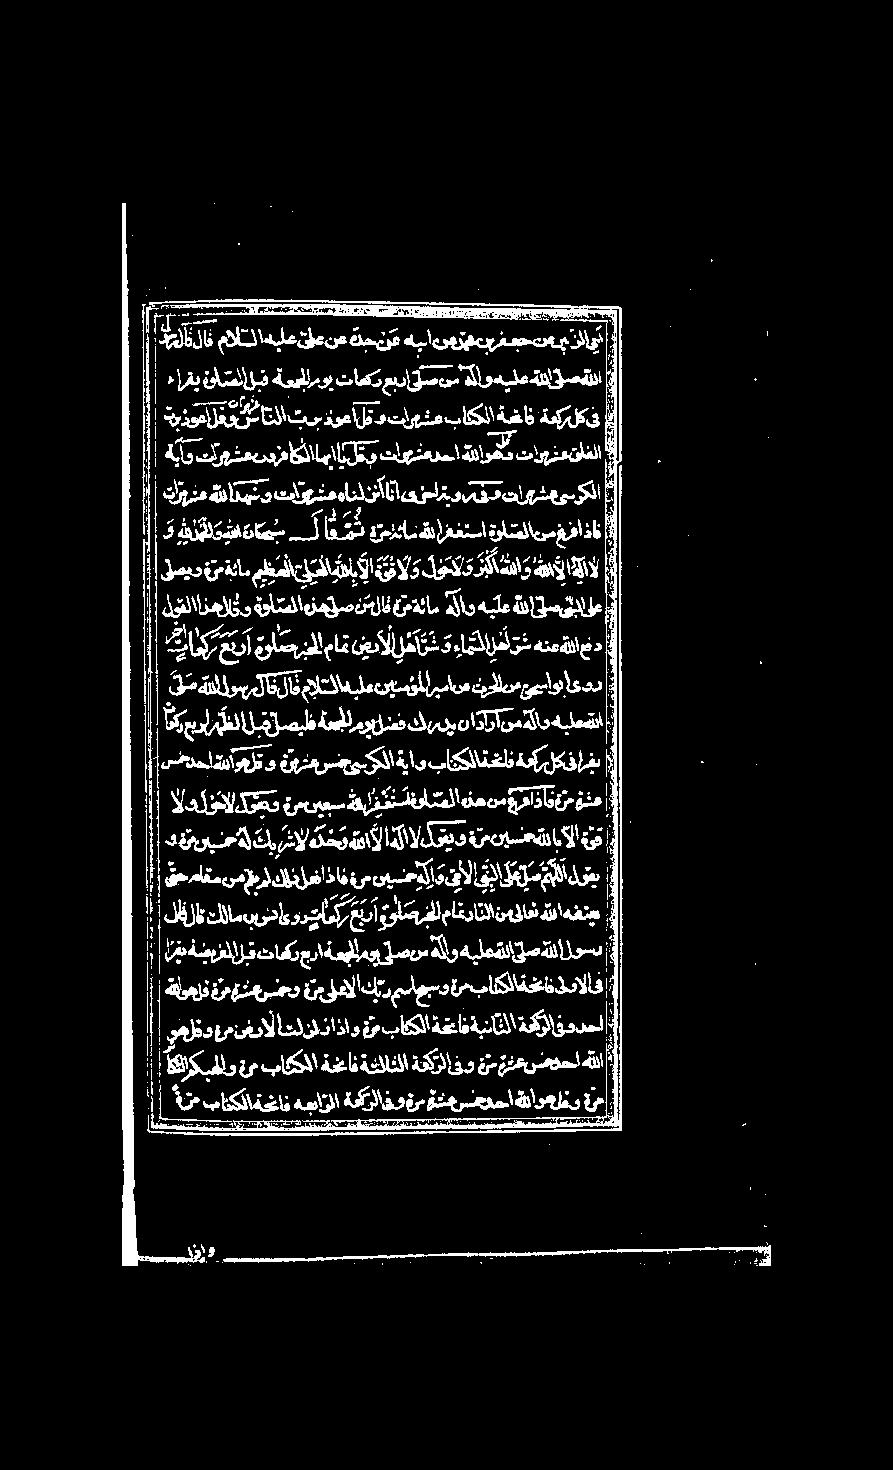 ابي الزبير عن جعفر بن محمد عن ابيه عن جده عن علي عليه السلام قال قال رسول
الله صلى الله عليه واله من صلى اربع ركعات يوم الجمعة قبل الصلوة يقراء
فى كل ركعة فاتحة الكتاب عشر مرات وقل اعوذ برب الناس عشر مرات وقل اعوذ برب
الفلق عشر مرات وقل هو الله احد عشر مرات وقل يا ايها الكافرون عشر مرات واية
الكرسى عشر مرات وفى رواية اخرى انا انزلناه عشر مرات وشهد الله عشر مرات
فاذا فرغ من الصلوة استغفر الله مائة مرة ثُمَّ قالَ سُبحانَ اللهِ وَالْحَمْدُ لِلهِ وَ
لا اِلهَ اِلَّا اللهُ وَاللهُ اَكْبَرُ وَلا حَوْلَ وَلا قُوَّةَ اِلَّا بِاللهِ الْعَلِىِّ الْعَظِيمِ مائة مرة ويصلى
على النبى صلى الله عليه واله مائة مرة قال من صلى هذه الصلوة وقال هذا القول
دفع الله عنه شَرَّ اَهْلِ السَّماءِ وَشَرَّ اَهْلِ الْاَرْضِ تمام الخبر صَلوة اَرْبَعَ رَكَعاتٍ اُخَر
روى ابو اسحق عن الحرث عن امير المؤمنين عليه السلام قال قال رسول الله صلى
الله عليه واله من اراد ان يدرك فضل يوم الجمعة فليصل قبل الظهر اربع ركعات
يقرا فى كل ركعة فاتحة الكتاب واية الكرسى خمس عشرة مرة وقل هو الله احد خمس
عشرة مرة فاذا فرغ من هذه الصلوة اسْتَغْفَرَ الله سبعين مرة ويقول لا حَوْلَ ولا
قوة الا بالله خمسين مرة ويقول لا اله الا الله وَحْدَهُ لا شَرِيكَ لَهُ خمسين مرة و
يقول اَللّهُمَّ صَلِّ عَلَى النَّبِىِّ الْاُمِّىِّ وَآلِهِ خمسين مرة فاذا فعل ذلك لم يقم من مقامه حتى
يعتقه الله تعالى من النار تمام الخبر صَلوة اَرْبَعَ رَكَعاتٍ روى انس بن مالك قال قال
رسول الله صلى الله عليه واله من صلى يوم الجمعة اربع ركعات قبل الفريضة يقرا
فى الاولى فاتحة الكتاب مرة وسبح اسم ربك الاعلى مرة وخمس عشرة مرة قل هو الله
احد وفى الركعة الثانية فاتحة الكتاب مرة واذا زلزلت الارض مرة وقل هو
الله احد خمس عشرة مرة وفى الركعة الثالثة فاتحة الكتاب مرة والهيكم التكاثر
مرة وقل هو الله احد خمس عشرة مرة وفى الركعة الرابعه فاتحة الكتاب مرة
واذا